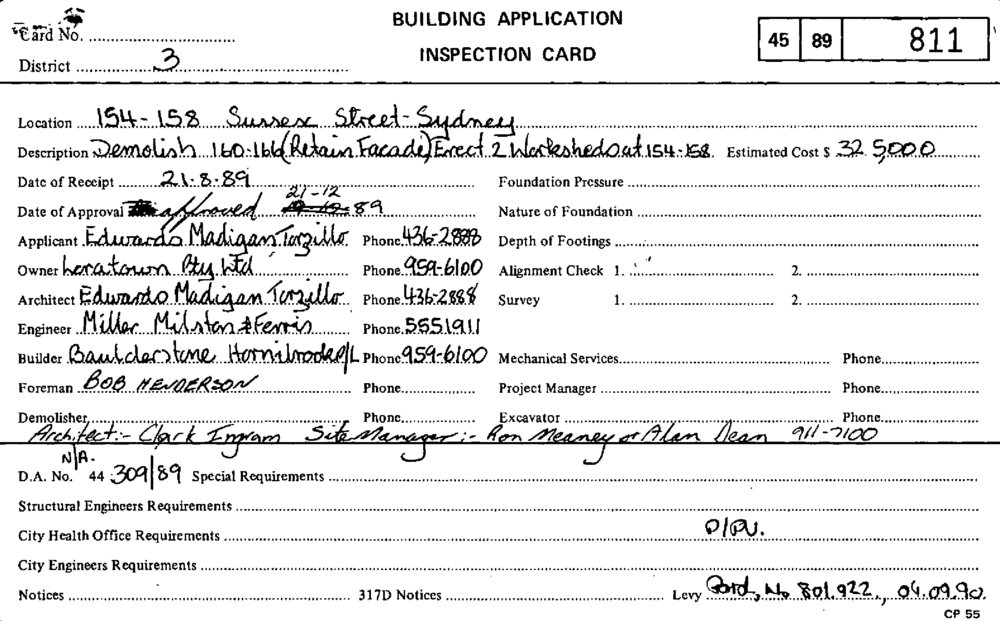 BUILDING APPLICATION
INSPECTION CARD
Card No.
District 3
45 89 811
Location 154-158 Sussex Street-Sydney
Description Demolish 160-166 (Retain Facade) Erect 2 Worksheds at 154-158 Estimated Cost $ 32 5,000
Date of Receipt 21.8.89 Foundation Pressure
Date of Approval approved 21-12 89 Nature of Foundation
Applicant Edwards Madigan Torzillo Phone 436-2888 Depth of Footings
Owner Loratown Pty Ltd Phone 959-6100 Alignment Check 1. 2.
Architect Edwards Madigan Torzillo Phone 436-2888 Survey 1. 2.
Engineer Miller Milston & Ferris Phone 5551911
Builder Baulderstone Hornibrook P/L Phone 959-6100 Mechanical Services Phone
Foreman BOB HENDERSON Phone Project Manager Phone
Demolisher Phone Excavator Phone
Architect:- Clark Ingram Site Manager:- Ron Meaney or Alan Dean 911-7100
N/A.
D.A. No. 44 309/89 Special Requirements
Structural Engineers Requirements
City Health Office Requirements
City Engineers Requirements
Notices 317D Notices Levy No 801.922., 04.09.90.
CP 55